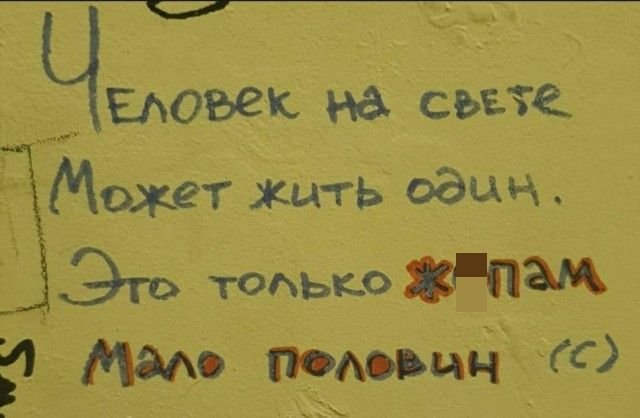 Человек на свете
Может жить один.
Это только ж пам
Мало половин (с)